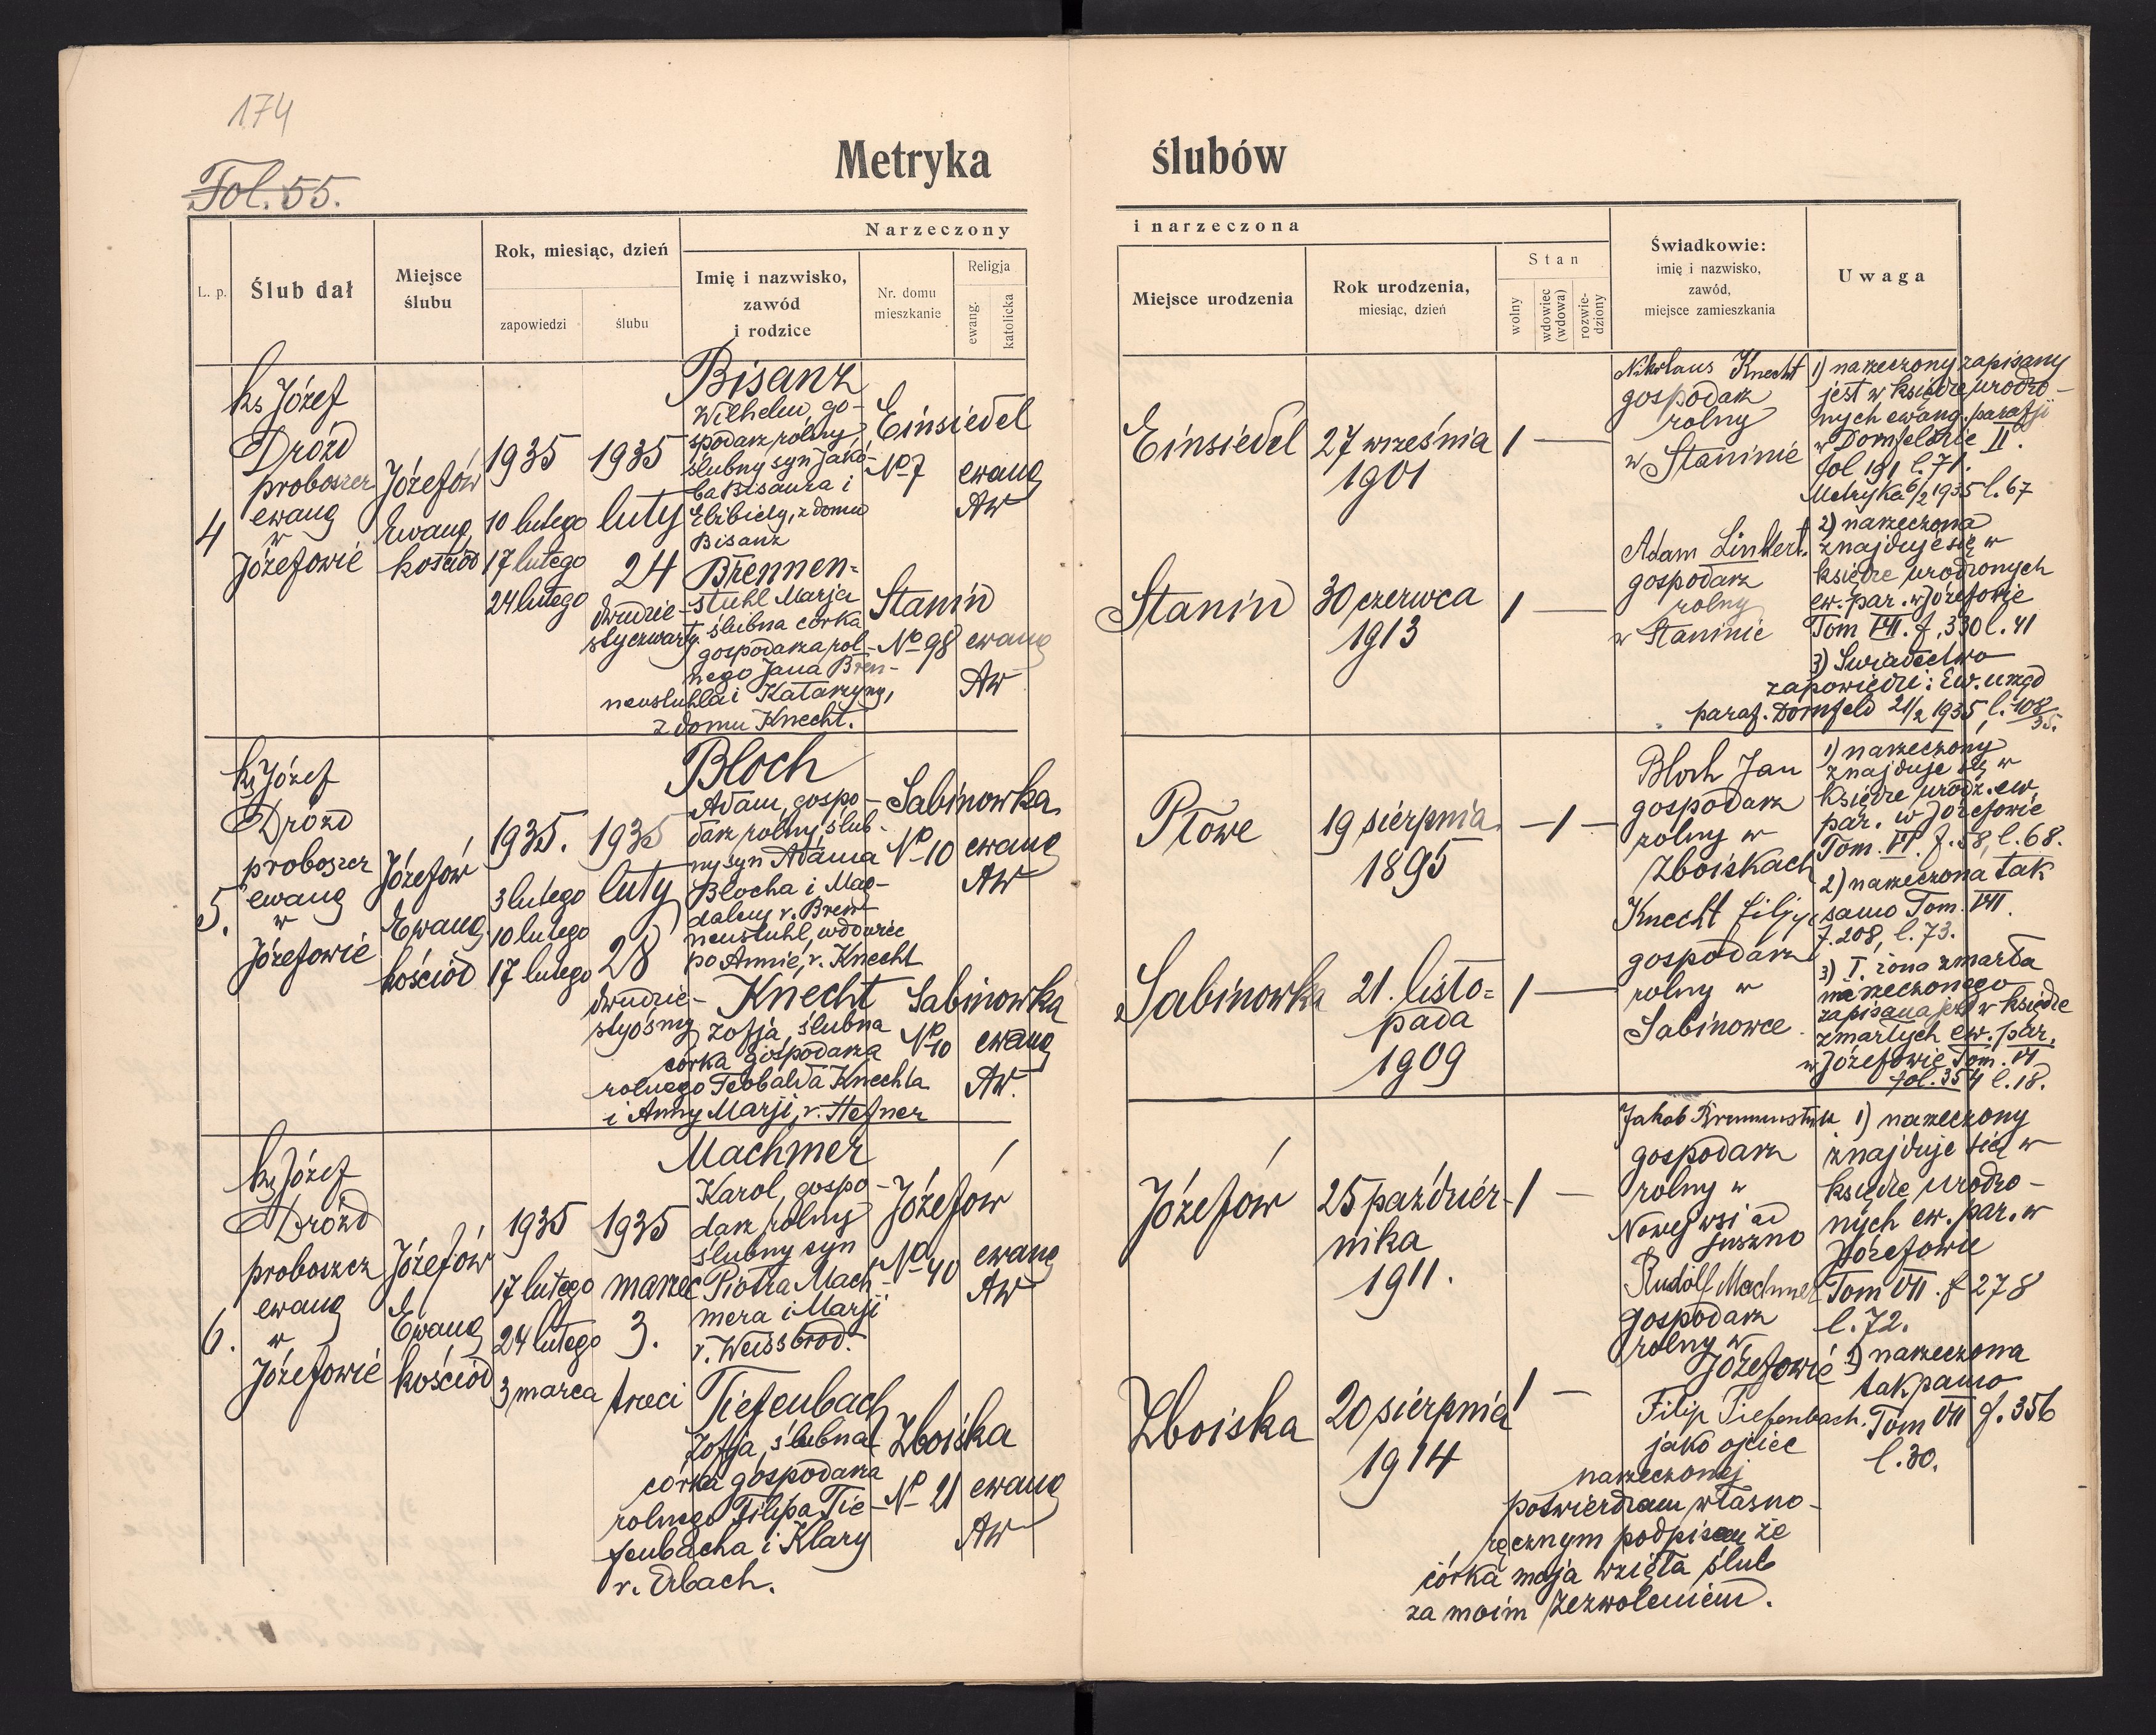 174
Fol. 55.
Metryka ślubów
Narzeczony i narzeczona
L. p.
Ślub dał
Miejsce ślubu
Rok, miesiąc, dzień
zapowiedzi
ślubu
Imię i nazwisko,
zawód
i rodzice
Nr. domu
mieszkanie
Religja
ewang.
katolicka
Miejsce urodzenia
Rok urodzenia,
miesiąc, dzień
Stan
wolny
wdowiec
(wdowa)
rozwie-
dziony
Świadkowie:
imię i nazwisko,
zawód,
miejsce zamieszkania
Uwaga
4
ks Józef
Dróżd
proboszcz
ewang
w
Józefowie
Józefów
Ewang.
kościół
1935
10 lutego
17 lutego
24 lutego
1935
luty
24
dwudzie-
sty czwarty
Bisanz
Wilhelm, go-
spodarz rolny,
ślubny syn Jakó-
ba Bisanza i
Elżbiety, z domu
Bisanz
Einsiedel
No 7
ewang
AW
Einsiedel
27 września
1901
1 —
Brennen=
stuhl Marja
ślubna córka
gospodarza rol-
nego Jana Bren-
nenstuhla i Katarzyny,
z domu Knecht.
Stanin
No 98
ewang
AW
Stanin
30 czerwca
1913
1 —
Nikolaus Knecht
gospodarz
rolny
w Staninie
Adam Linkert.
gospodarz
rolny
w Staninie
1) narzeczony zapisany
jest w księdze urodzo-
nych ewang. parafji
w Dornfeldzie II.
fol 191 l. 71.
Metryka 6/2 1935 l. 67
2) narzeczona
znajduje się w
księdze urodzonych
ew. par. w Józefowie
Tom VII. f. 330 l. 41
3) Świadectwo
zapowiedzi: Ew. urząd
paraf. Dornfeld 21/2 1935, l. 108/35.
5.
ks Józef
Dróżd
proboszcz
ewang
w
Józefowie
Józefów
Ewang.
kościół
1935.
3 lutego
10 lutego
17 lutego
1935
luty
28
dwudzie-
sty ósmy
Bloch
Adam, gospo-
darz rolny, ślub-
ny syn Adama
Blocha i Mag-
daleny r. Bren-
nenstuhl, wdowiec
po Annie, r. Knecht
Sabinowka
No 10
ewang
AW
Płowe
19 sierpnia
1895
— 1 —
Knecht
Zofja, ślubna
córka gospodarza
rolnego Teobalda Knechta
i Anny Marji, r. Hefner
Sabinowka
No 10
ewang
AW.
Sabinowka
21. listo=
pada
1909
1 —
Bloch Jan
gospodarz
rolny w
Zboiskach
Knecht Filip
gospodarz
rolny w
Sabinowce
1) narzeczony
znajduje się w
księdze urodz. ew.
par. w Józefowie
Tom. VI. f. 58, l. 68.
2) narzeczona tak
samo Tom. VII.
f. 208, l. 73.
3) I. żona zmarła
narzeczonego
zapisana jest w księdze
zmarłych ew. par.
w Józefowie Tom. VI
fol. 354 l. 18.
6.
ks Józef
Dróżd
proboszcz
ewang
w
Józefowie
Józefów
Ewang
kościół
1935
17 lutego
24 lutego
3 marca
1935
marzec
3.
trzeci
Machmer
Karol, gospo-
darz rolny
ślubny syn
Piotra Mach-
mera i Marji
r. Weissbrod.
Józefów
No 40
ewang
AW
Józefów
25 paździer-
nika
1911.
1 —
Tiefenbach
Zofja, ślubna
córka gospodarza
rolnego Filipa Tie-
fenbacha i Klary
r. Erbach.
Zboiska
No 21
ewang
AW
Zboiska
20 sierpnia
1914
1 —
Jakob Brennenstuhl
gospodarz
rolny w
Nowej wsi ad
Suszno
Rudolf Machmer
gospodarz
rolny w
Józefowie
Filip Tiefenbach.
jako ojciec
narzeczonej
potwierdzam własno-
ręcznym podpisem że
córka moja wzięła ślub
za moim zezwoleniem.
1) narzeczony
znajduje się w
księdze urodzo-
nych ew. par. w
Józefowie
Tom VII. f 278
l. 72.
2) narzeczona
tak samo
Tom VII f. 356
l. 30.